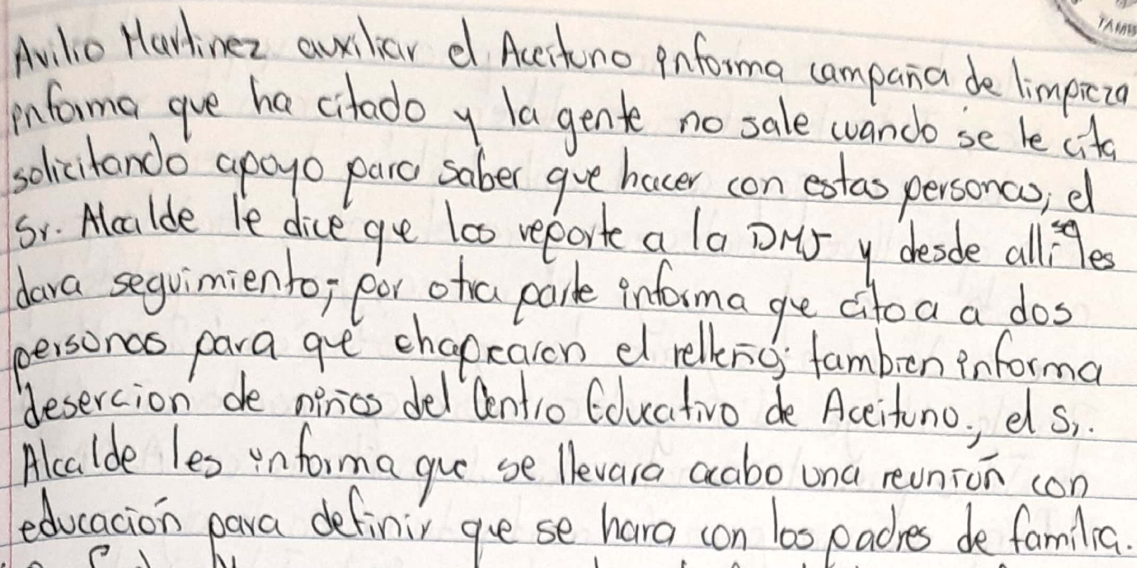 TAMB
Avilio Martinez auxiliar el Aceituno informa campaña de limpieza
informa que ha citado y la gente no sale cuando se le cita
solicitando apoyo para saber que hacer con estas personas, el
Sr. Alcalde le dice que los reporte a la DMJ y desde alli se les
dara seguimiento; por otra parte informa que citoa a dos
personas para que chapearon el relleno; tambien informa
desercion de niños del Centro Educativo de Aceituno, el Sr.
Alcalde les informa que se llevara acabo una reunión con
educación para definir que se hara con los padres de familia.